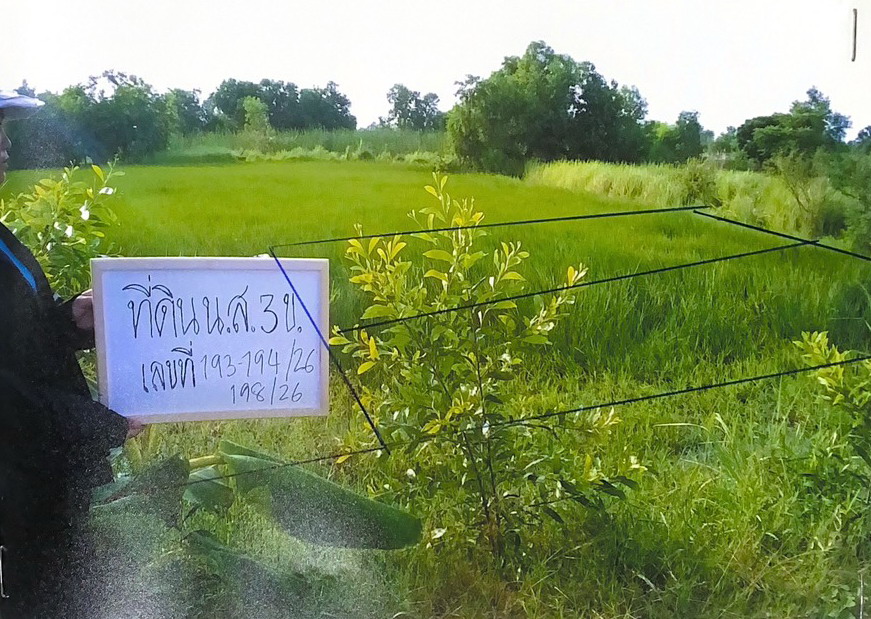 ที่ดิน น.ส. 3 ข.
เลขที่ 193-194/26
198/26